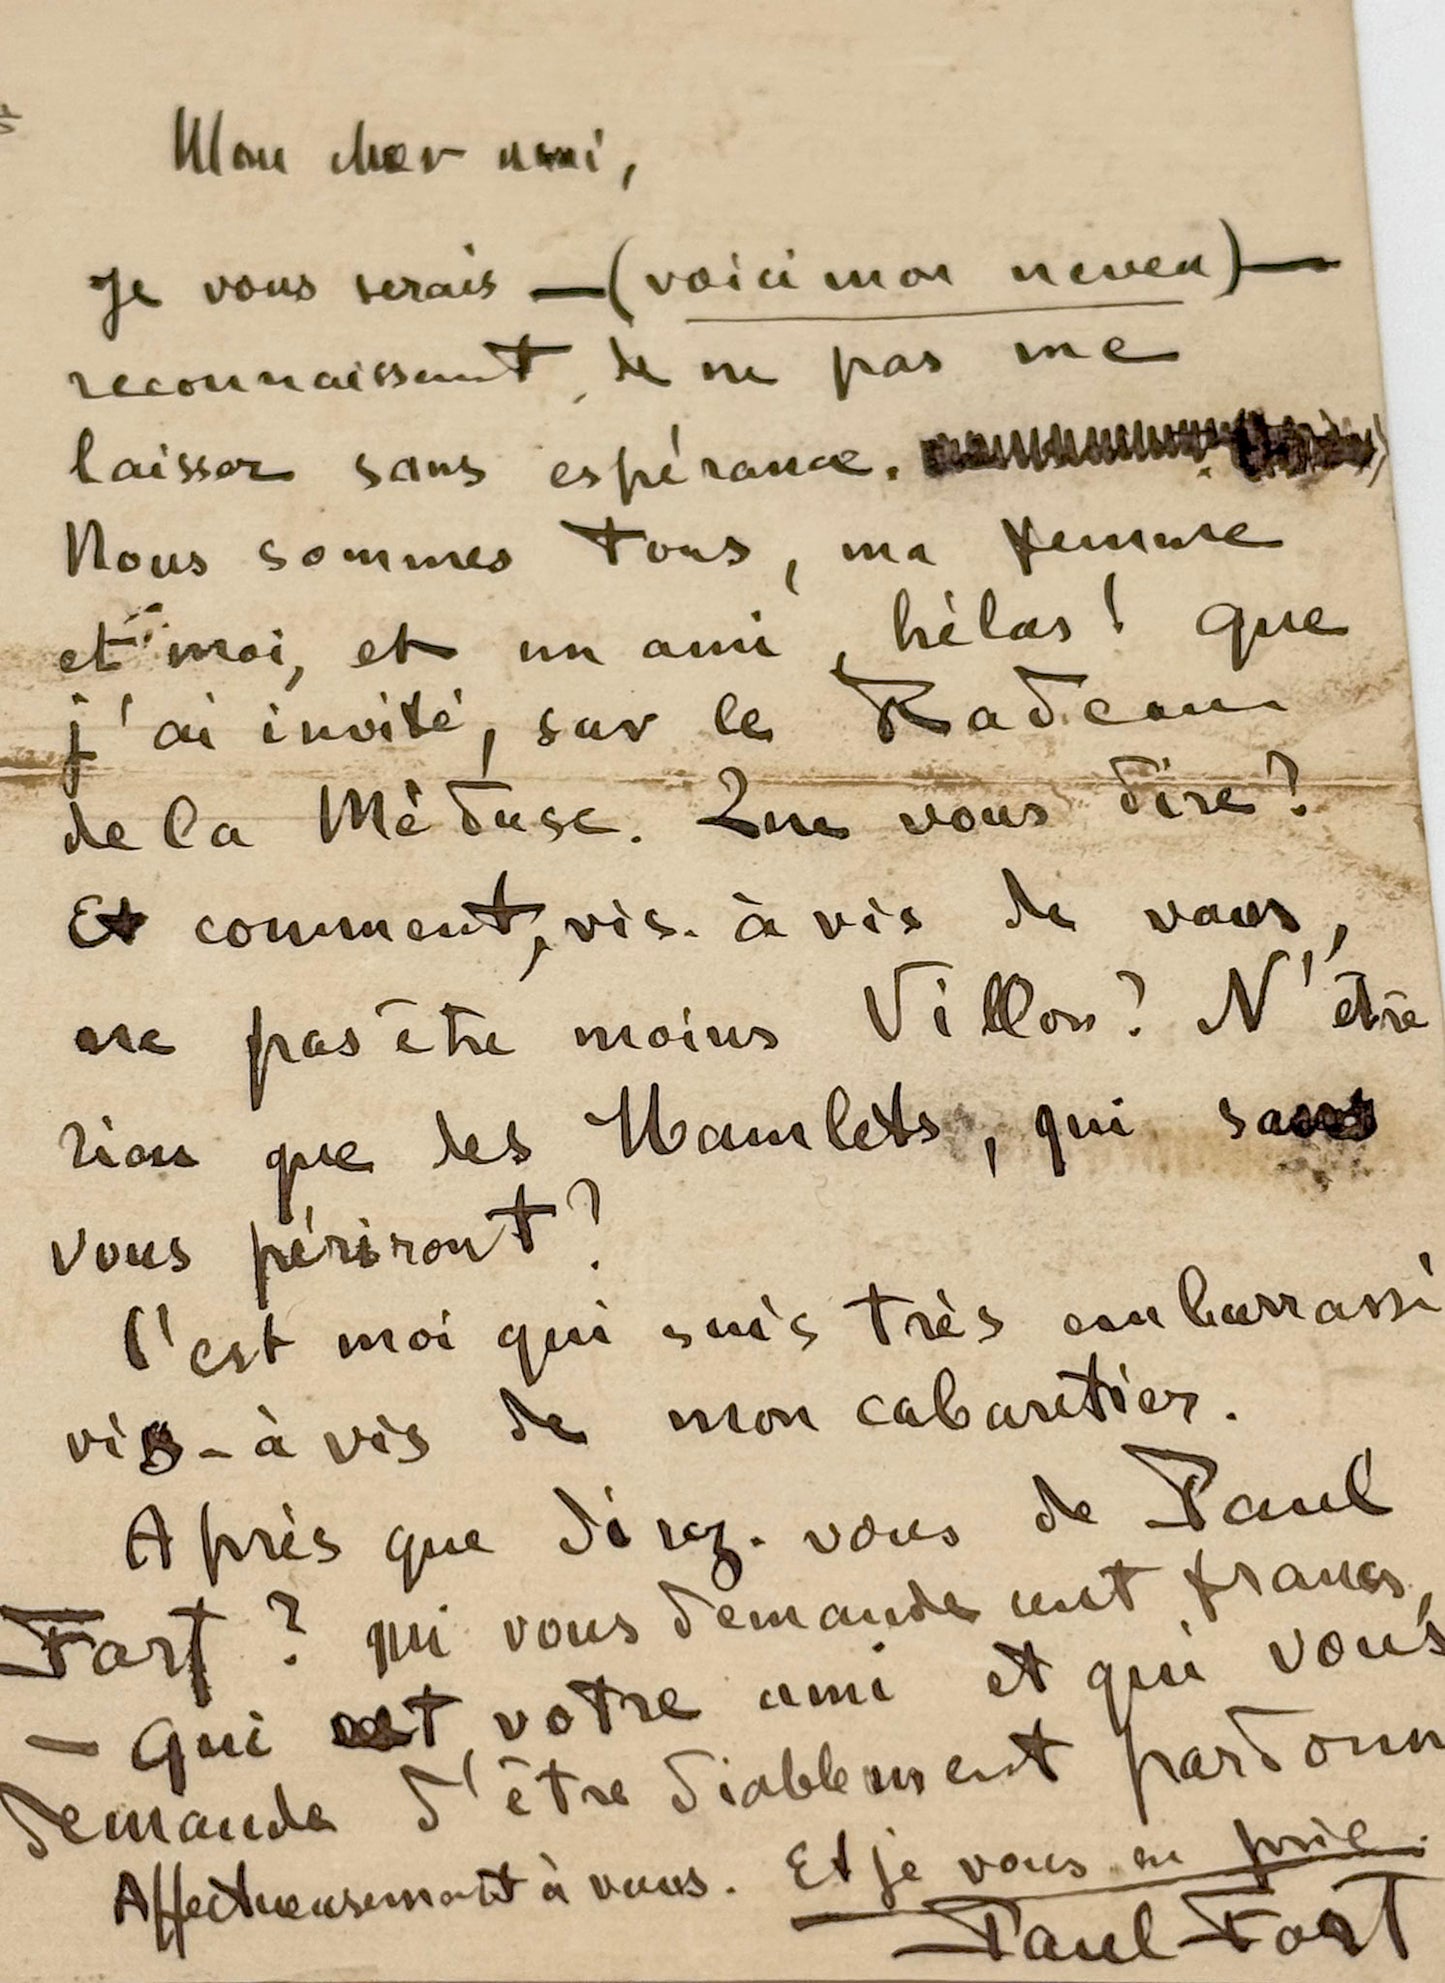 Mon cher ami,
Je vous serais — (voici mon neveu) —
reconnaissant, de ne pas me
laisser sans espérance.
Nous sommes tous, ma femme
et moi, et un ami, hélas! que
j'ai invité, sur le Radeau
de la Méduse. Que vous dire?
Et comment, vis-à vis de vous,
ne pas être moins Villon? N'être
rien que des Hamlets, qui sans
vous périront?
C'est moi qui suis très embarrassé
vis-à vis de mon cabaretier.
Après que direz-vous de Paul
Fort? qui vous demande cent francs,
— qui est votre ami et qui vous
demande d'être diablement pardonn
Affectueusement à vous. Et je vous en prie.
Paul Fort